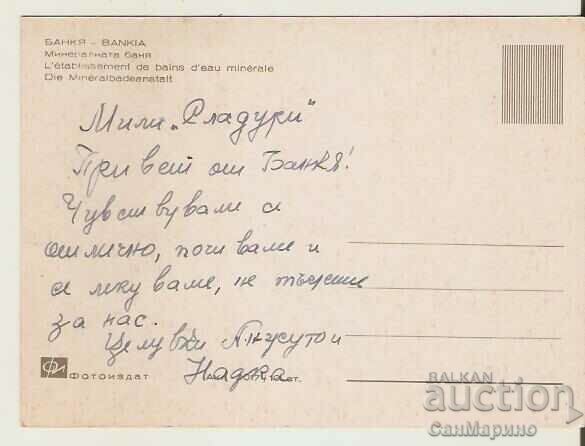 БАНКЯ – BANKIA
Минералната баня
L'établissement de bains d'eau minérale
Die Mineralbadeanstalt
Мили „
Привет от Банкя!
Чувствуваме се
отлично, почиваме и
се лекуваме, не
за нас.
Целувки
Надка
ФОТОИЗДАТ
BALKAN
auction
СанМарино